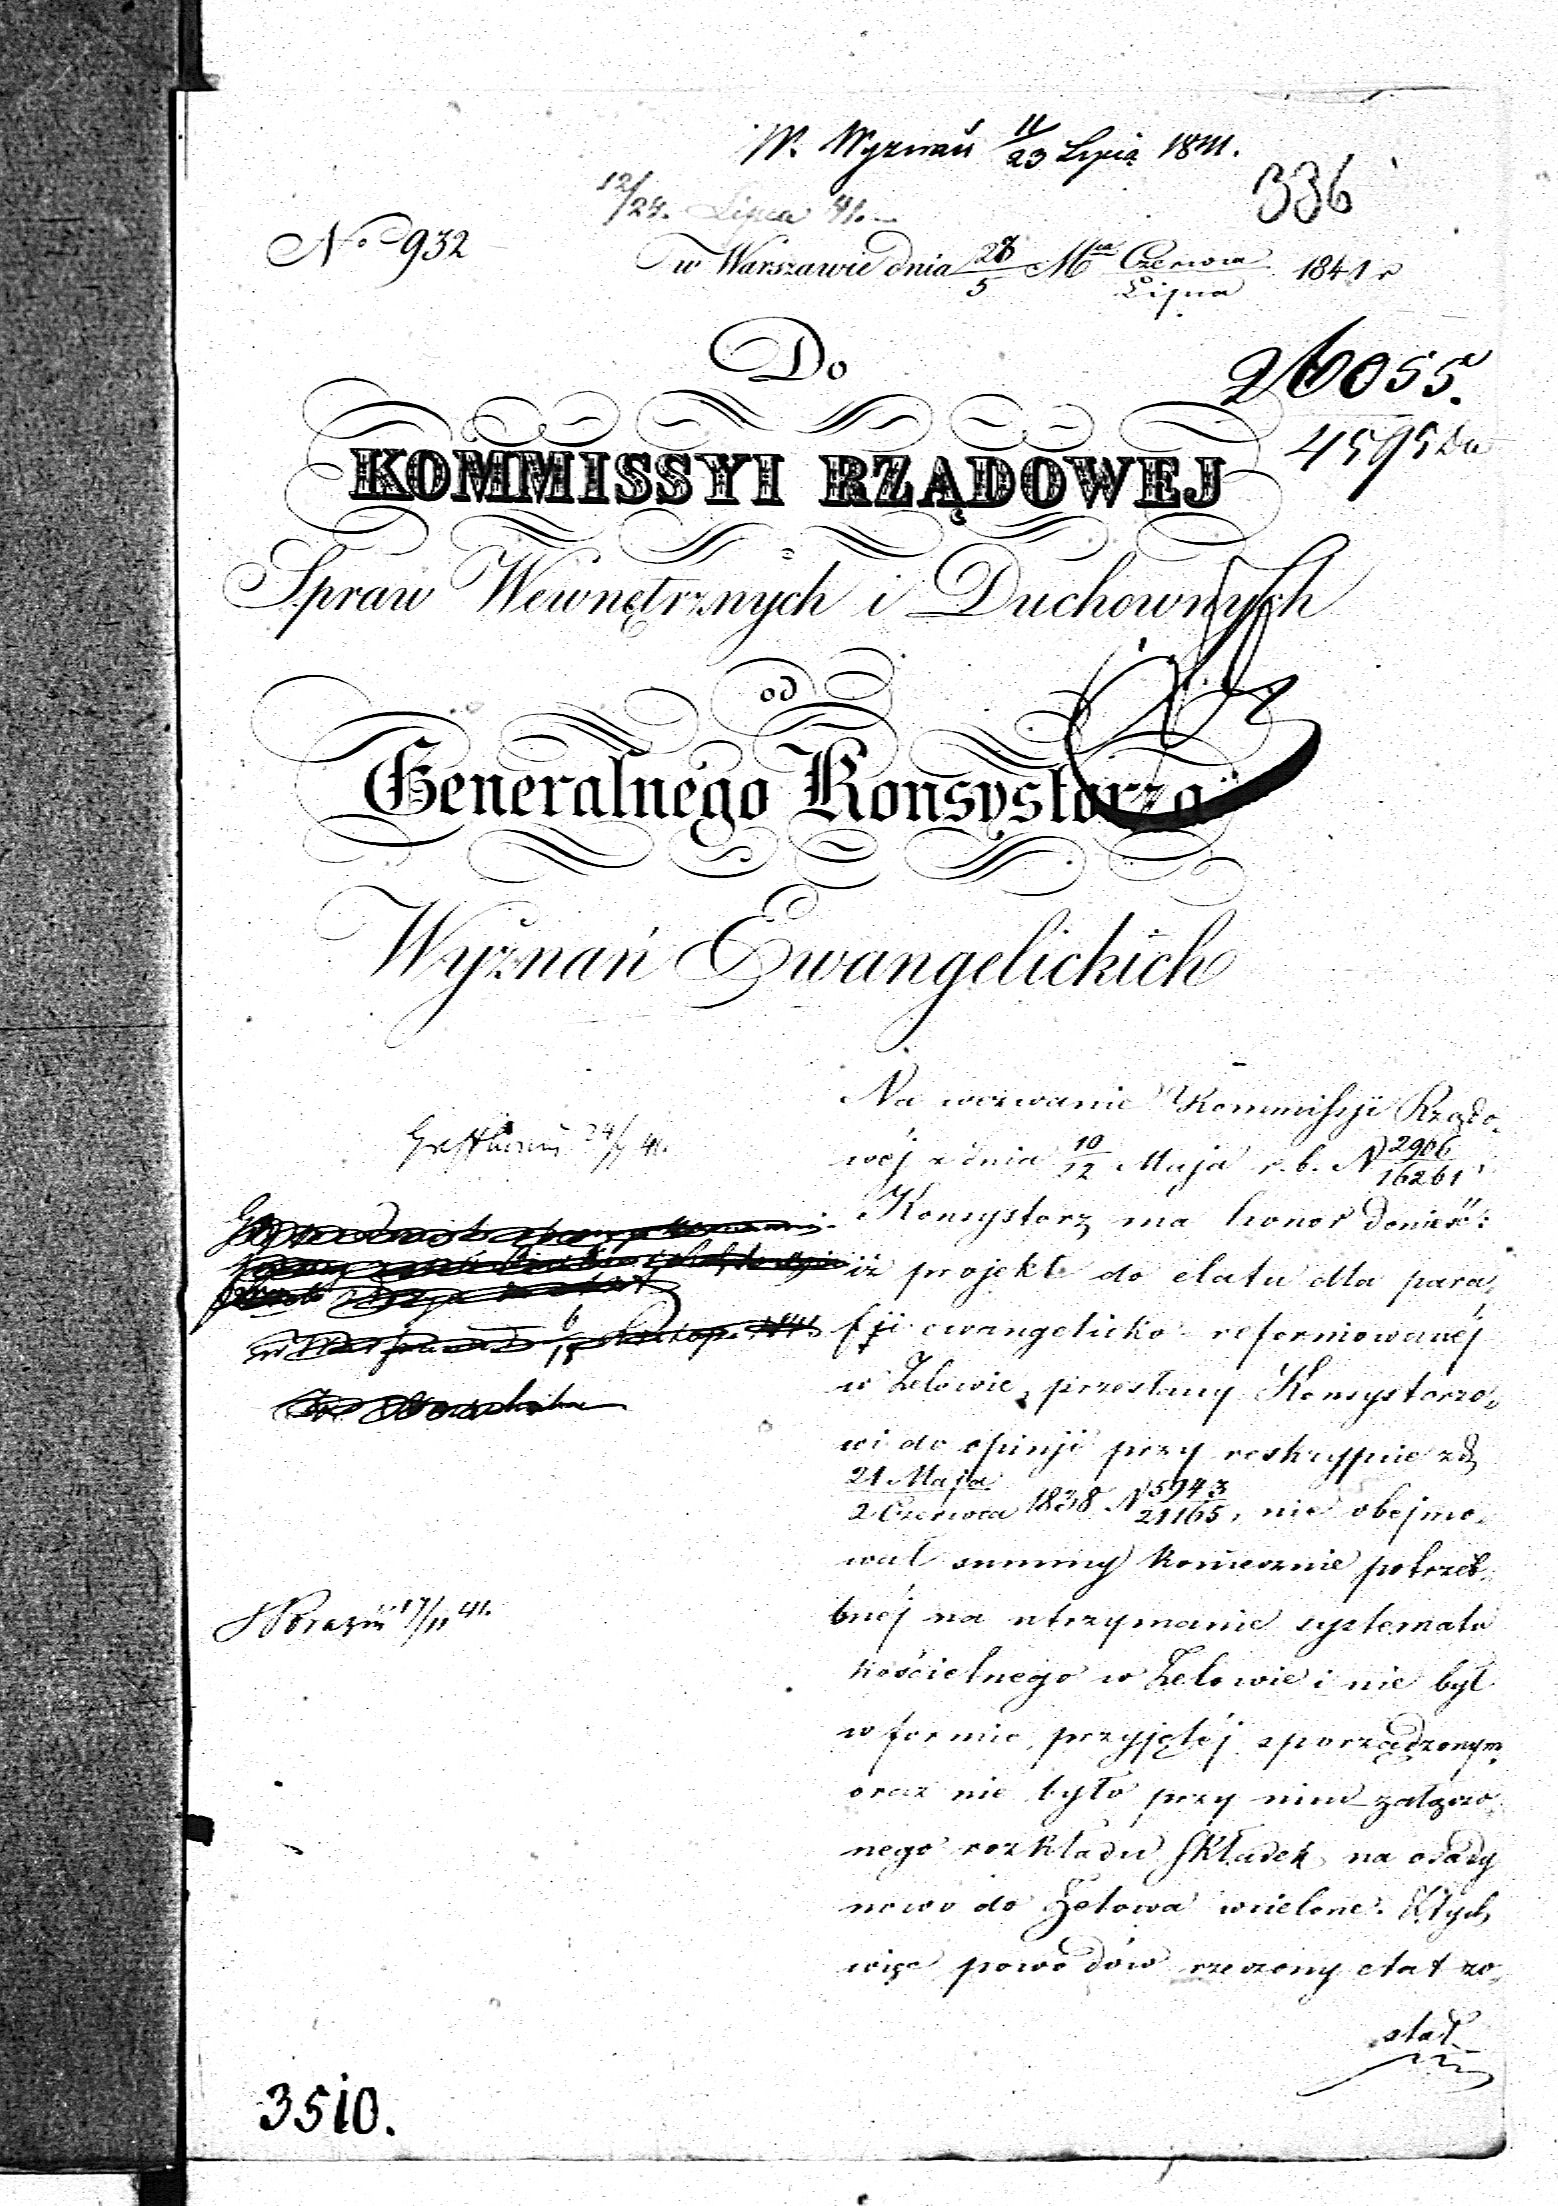 W. Wyznań 11/23 Lipca 1841.
336
12/24. Lipca 41.
No 932
w Warszawie dnia 28/5 Mca Czerwca/Lipca 1841 r
Do
26055.
4595 Du
KOMMISSYI RZĄDOWEJ
Spraw Wewnętrznych i Duchownych
od
Generalnego Konsystorza
Wyznań Ewangelickich
Na wezwanie Kommissji Rządo,
wéj z dnia 10/12 Maja r. b. N 2906/16261,
Konsystorz ma honor donieść:
iż projekt do etatu dla para,
fji ewangelicko reformowanéj
w Zelowie, przesłany Konsystorzo,
wi do opinji przy reskrypcie z d
21 Maja/2 Czerwca 1838 N 5943/21165, nie obejmo,
wał summy koniecznie potrzeb,
bnéj na utrzymanie systematu
kościelnego w Zelowie i nie był
w formie przyjętéj sporządzonym,
oraz nie było przy nim załączo,
nego rozkładu składek na osady
nowo do Zelowa wcielone. Z tych
więc powodów rzeczony etat zo,
stał
24/7 41.
17/11 41.
3510.